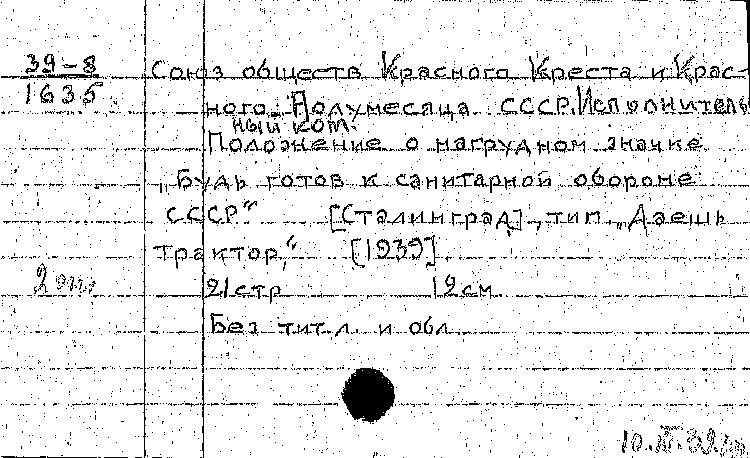 39-8
1635
Союз обществ Красного Креста и Крас-
ного Полумесяца СССР. Исполнитель
ный ком.
Положение о нагрудном значке
„Будь готов к санитарной обороне
СССР“ [Сталинград], тип. „Даешь
трактор,“ [1939].
21 стр 12 см
Без тит. л. и обл.